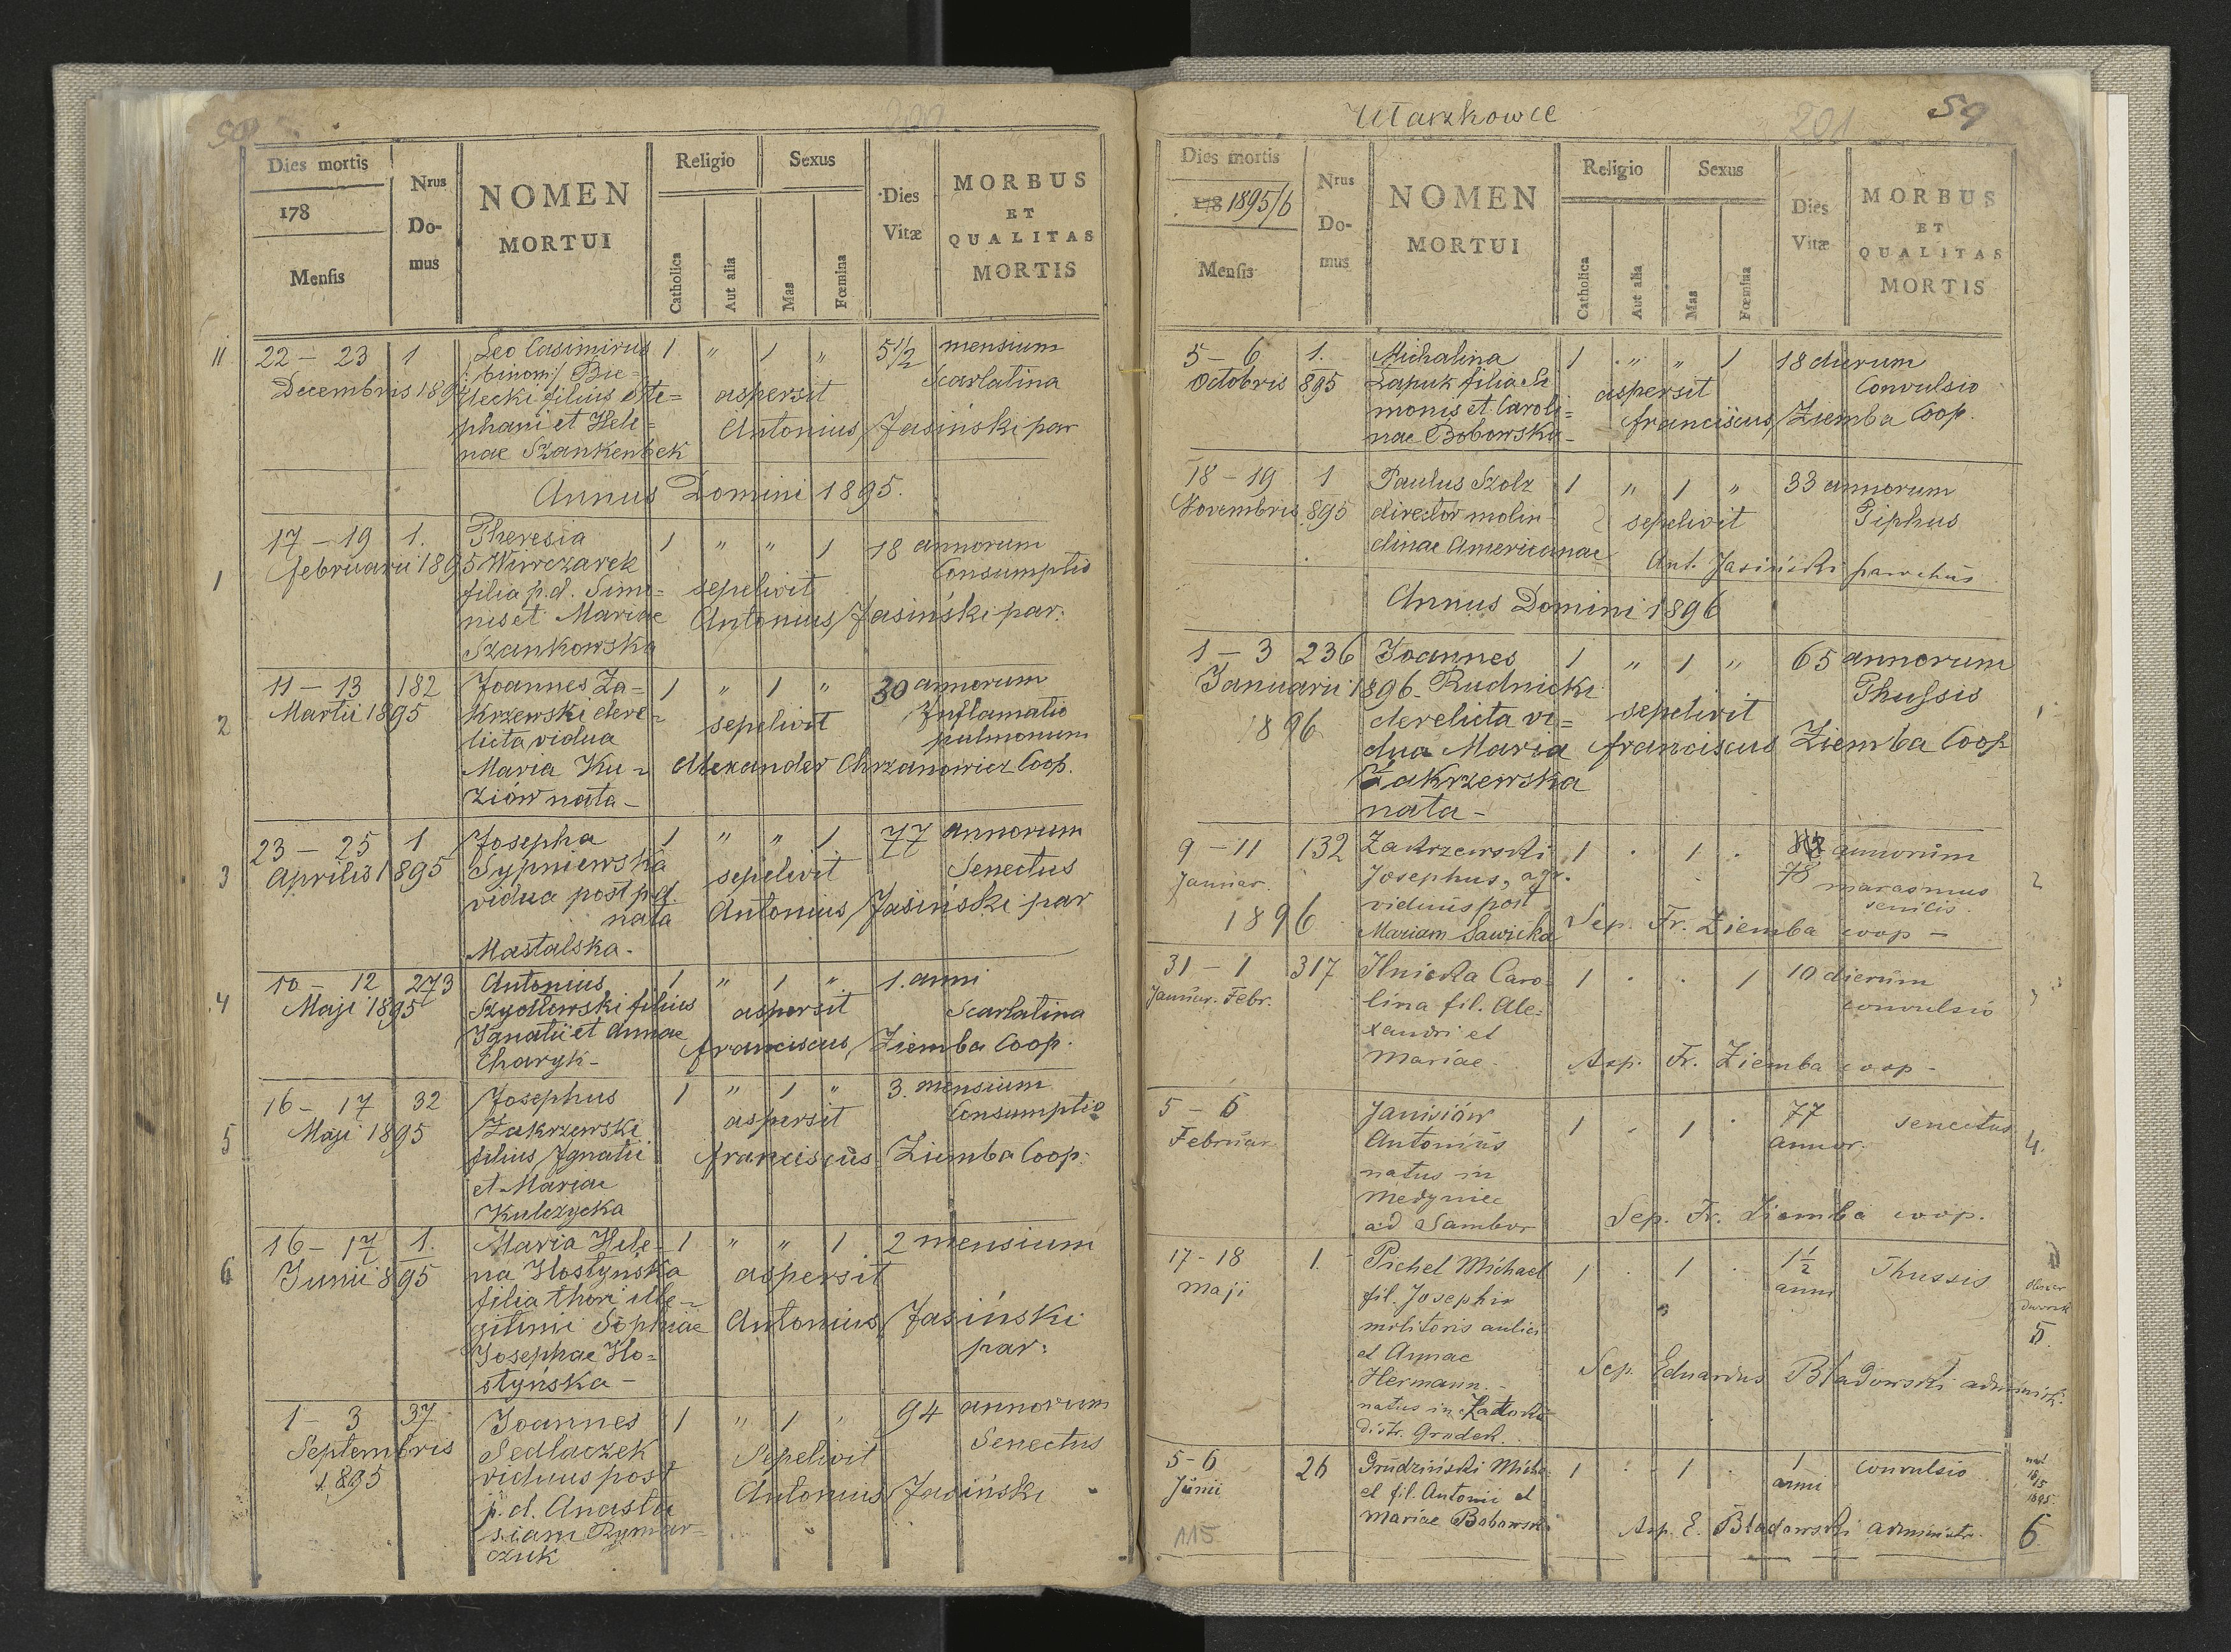 59
200
Dies mortis
178
Mensis
Nrus
Do-
mus
NOMEN
MORTUI
Religio
Catholica
Aut alia
Sexus
Mas
Fœmina
Dies
Vitæ
MORBUS
ET
QUALITAS
MORTIS
11 22 – 23 1 Leo Casimirus 1 " 1 " 5 1/2 mensium
/:binom:/ Bie=
Decembris 189 lecki filius Ste= aspersit Scarlatina
phani et Hele= Antonius Jasiński par
nae Szankenbek
Annus Domini 1895.
17 – 19 1. Theresia 1 " " 1 18 annorum
1 februarii 1895 Wirczarek Consumptio
filia p.d. Simo= sepelivit
nis et Mariae Antonius Jasiński par:
Szankowska
11 – 13 182 Joannes Za= 1 " 1 " 30 annorum
2 Martii 1895 krzewski dere= sepelivit Inflamatio
licta vidua pulmonum
Maria Ku= Alexander Chrzanowicz Coop.
ziów nata –
23 – 25 1 Josepha 1 " " 1 77 annorum
3 Aprilis 1895 Sypniewska sepelivit Senectus
vidua post p.d. Antonius Jasiński par
nata
Mastalska –
10 – 12 273 Antonius 1 " 1 " 1. anni
4 Maji 1895 Szydłowski filius aspersit Scarlatina
Ignatii et Annae franciscus Ziemba Coop.
Charyk –
16 – 17 32 Josephus 1 " 1 " 3. mensium
5 Maji 1895 Zakrzewski aspersit Consumptio
filius Ignatii franciscus Ziemba Coop:
et Mariae
Kulczycka
16 – 17 1. Maria Hele= 1 " " 1 2 mensium
6 Junii 895 na Hostyńska aspersit
filia thori ille=
gitimi Sophiae Antonius Jasiński
Josephae Ho= par:
styńska –
1 – 3 37 Joannes 1 " 1 " 94 annorum
Septembris Sedlaczek Sepelivit Senectus
1895 viduus post
p.d. Anasta Antonius Jasiński
siam Rymar=
czuk
Ułaszkowce
201
59
Dies mortis
178 1895/6
Mensis
Nrus
Do-
mus
NOMEN
MORTUI
Religio
Catholica
Aut alia
Sexus
Mas
Fœmina
Dies
Vitæ
MORBUS
ET
QUALITAS
MORTIS
5 – 6 1. Michalina 1 " " 1 18 dierum
Octobris 895 Łapuk filia Si aspersit Convulsio
monis et Caroli= franciscus Ziemba Coop.
nae Bobowska –
18 – 19 1 Paulus Szolz 1 " 1 " 33 annorum
Novembris 895 director molen sepelivit Tiphus
dinae Americanae Ant. Jasiński parochus
Annus Domini 1896
1 – 3 236 Joannes 1 " 1 " 65 annorum
Januarii 1896 – Rudnicki Thussis
1896 derelicta vi= sepelivit 1
dua Maria franciscus Ziemba Coop
Zakrzewska
nata –
9 – 11 132 Zakrzewski 1 . 1 . annorum
Januar. Josephus, agr. 78 marasmus 2
viduus post senilis.
1896 Mariam Sawicka Sep. Fr. Ziemba coop –
31 – 1 317 Ilnicka Caro= 1 . . 1 10 dierum
Januar. Febr. lina fil. Ale= convulsio 3
xandri et
Mariae. Asp. Fr. Ziemba coop –
5 – 6 Janiviów 1 . 1 . 77 senectus
Februar. Antonius annor. 4.
natus in
Medynice
ad Sambor Sep. Fr. Ziemba coop.
17 – 18 1. Pichel Michael 1 . 1 . 1 1/2 Thussis
Maji fil. Josephi anni
molitoris aulici 5
et Annae
Hermann. – Sep. Eduardus Bładowski administr.
natus in
distr. Grudek.
5 – 6 26 Grudziński Micha= 1 . 1 . 1 convulsio nat
Junii el fil. Antonii et anni 18/5
1895.
Mariae Bobowsk Asp. E. Bładowski administr. 6
115